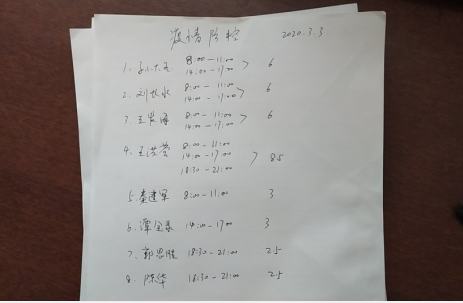 疫情防控 2020.3.3
1. 8:00-11:00
14:00-17:00 > 6
2. 刘 8:00-11:00
14:00-17:00 > 6
3 王 8:00-11:00
14:00-17:00 > 6
4. 王 8:00-11:00
14:00-17:00 > 8.5
18:30-21:00
5. 秦建军 8:00-11:00 3
6. 谭 14:00-17:00 3
7. 郭思 18:30-21:00 2.5
8. 陈华 18:30-21:00 2.5